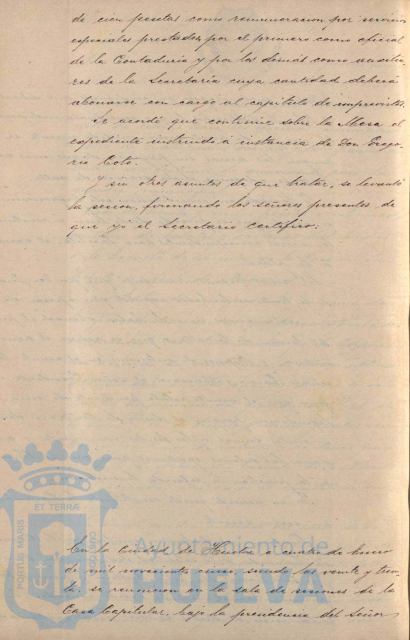 de cien pesetas como remuneracion por servicios
especiales prestados, por el primero como oficial
de la Contaduria y por los demás como auxilia-
res de la Secretaria cuya cantidad deberá
abonarse con cargo al capitulo de imprevistos.
Se acordó que continúe sobre la Mesa el
expediente instruido a instancia de Don Grego-
rio Coto.
Y sin otros asuntos de que tratar, se levantó
la sesion, firmando los señores presentes de
que yo el Secretario certifico:
ET TERRÆ
PORTUS MARIS
CUSTODIA
Ayuntamiento de
HUELVA
En la Ciudad de Huelva a cuatro de Enero
de mil novecientos cinco, siendo las veinte y trein-
ta, se reunieron en la sala de sesiones de la
Casa Capitular, bajo la presidencia del Señor